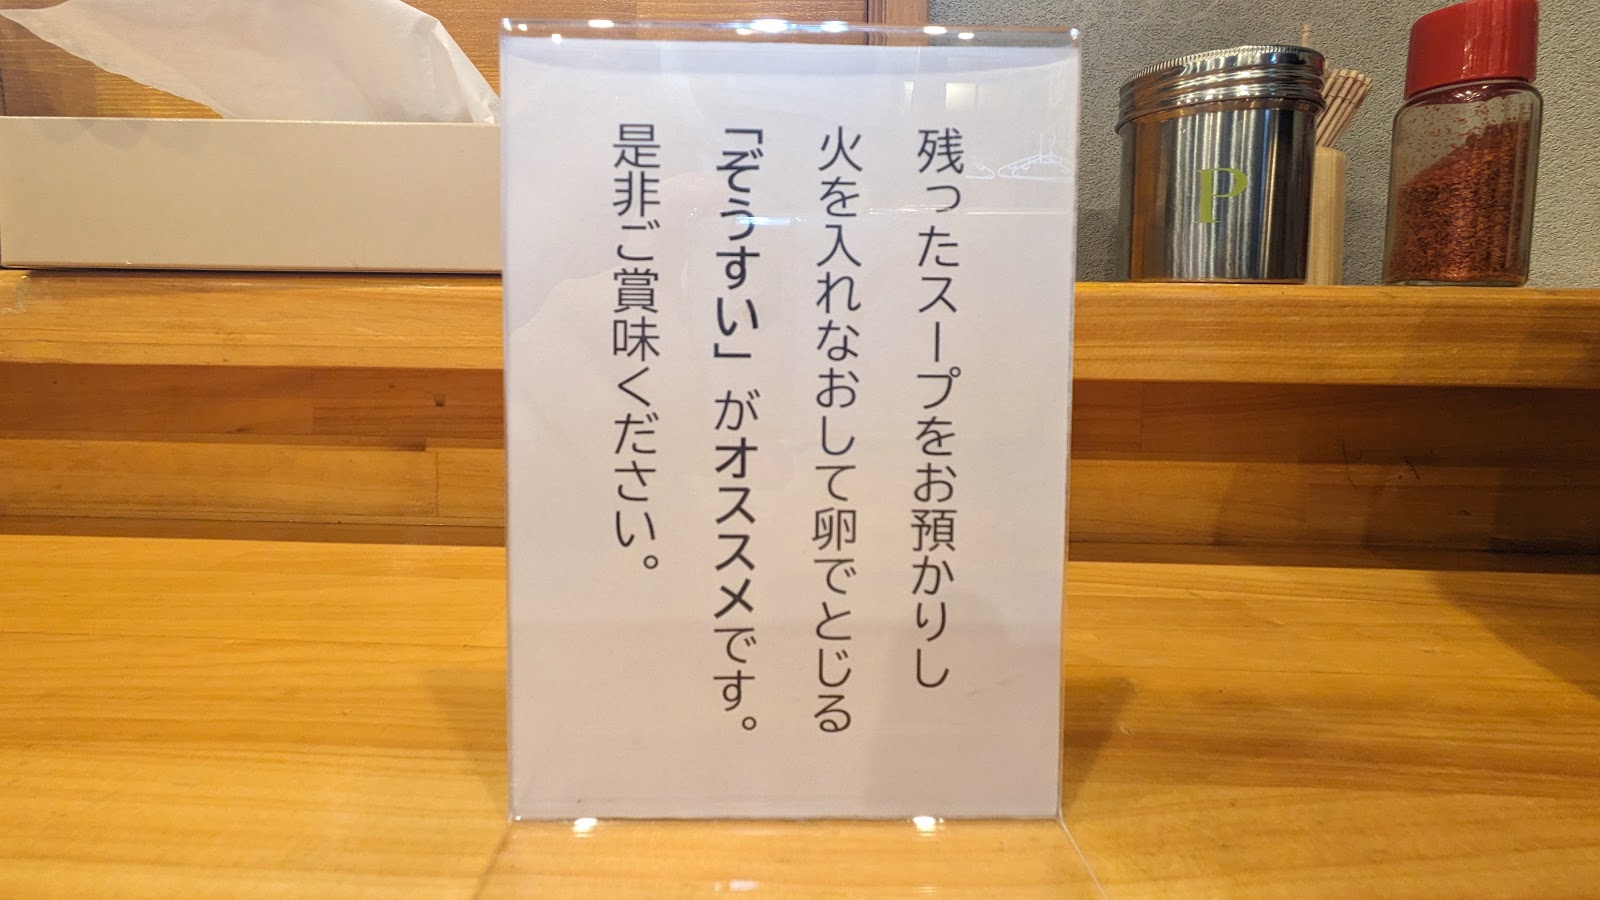 残ったスープをお預かりし
火を入れなおして卵でとじる
「ぞうすい」がオススメです。
是非ご賞味ください。
P